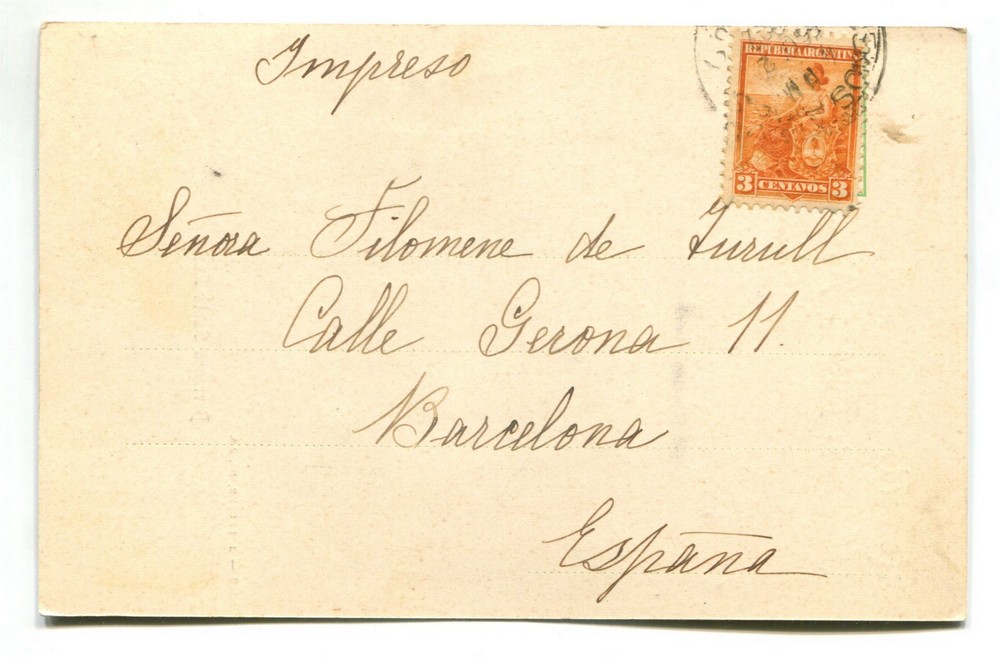 Impreso
REPUBLICA ARGENTINA
3 CENTAVOS 3
Señora Filomene de Turull
Calle Gerona 11.
Barcelona
España